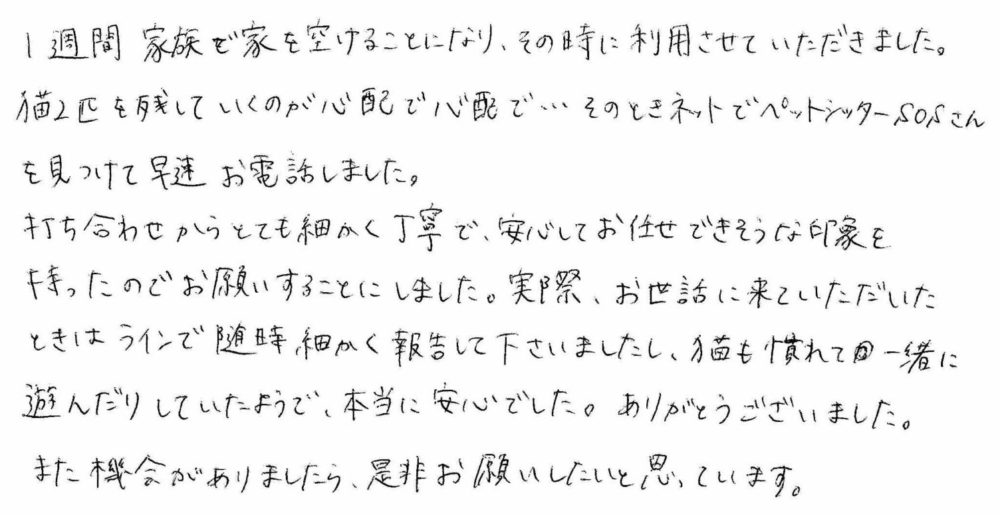 1週間 家族で家を空けることになり、その時に利用させていただきました。
猫2匹を残していくのが心配で心配で… そのときネットでペットシッターSOSさん
を見つけて早速 お電話しました。
打ち合わせからとても細かく丁寧で、安心してお任せできそうな印象を
持ったのでお願いすることにしました。実際、お世話に来ていただいた
ときは ラインで随時、細かく報告して下さいましたし、猫も慣れて一緒に
遊んだりしていたようで、本当に安心でした。ありがとうございました。
また機会がありましたら、是非お願いしたいと思っています。